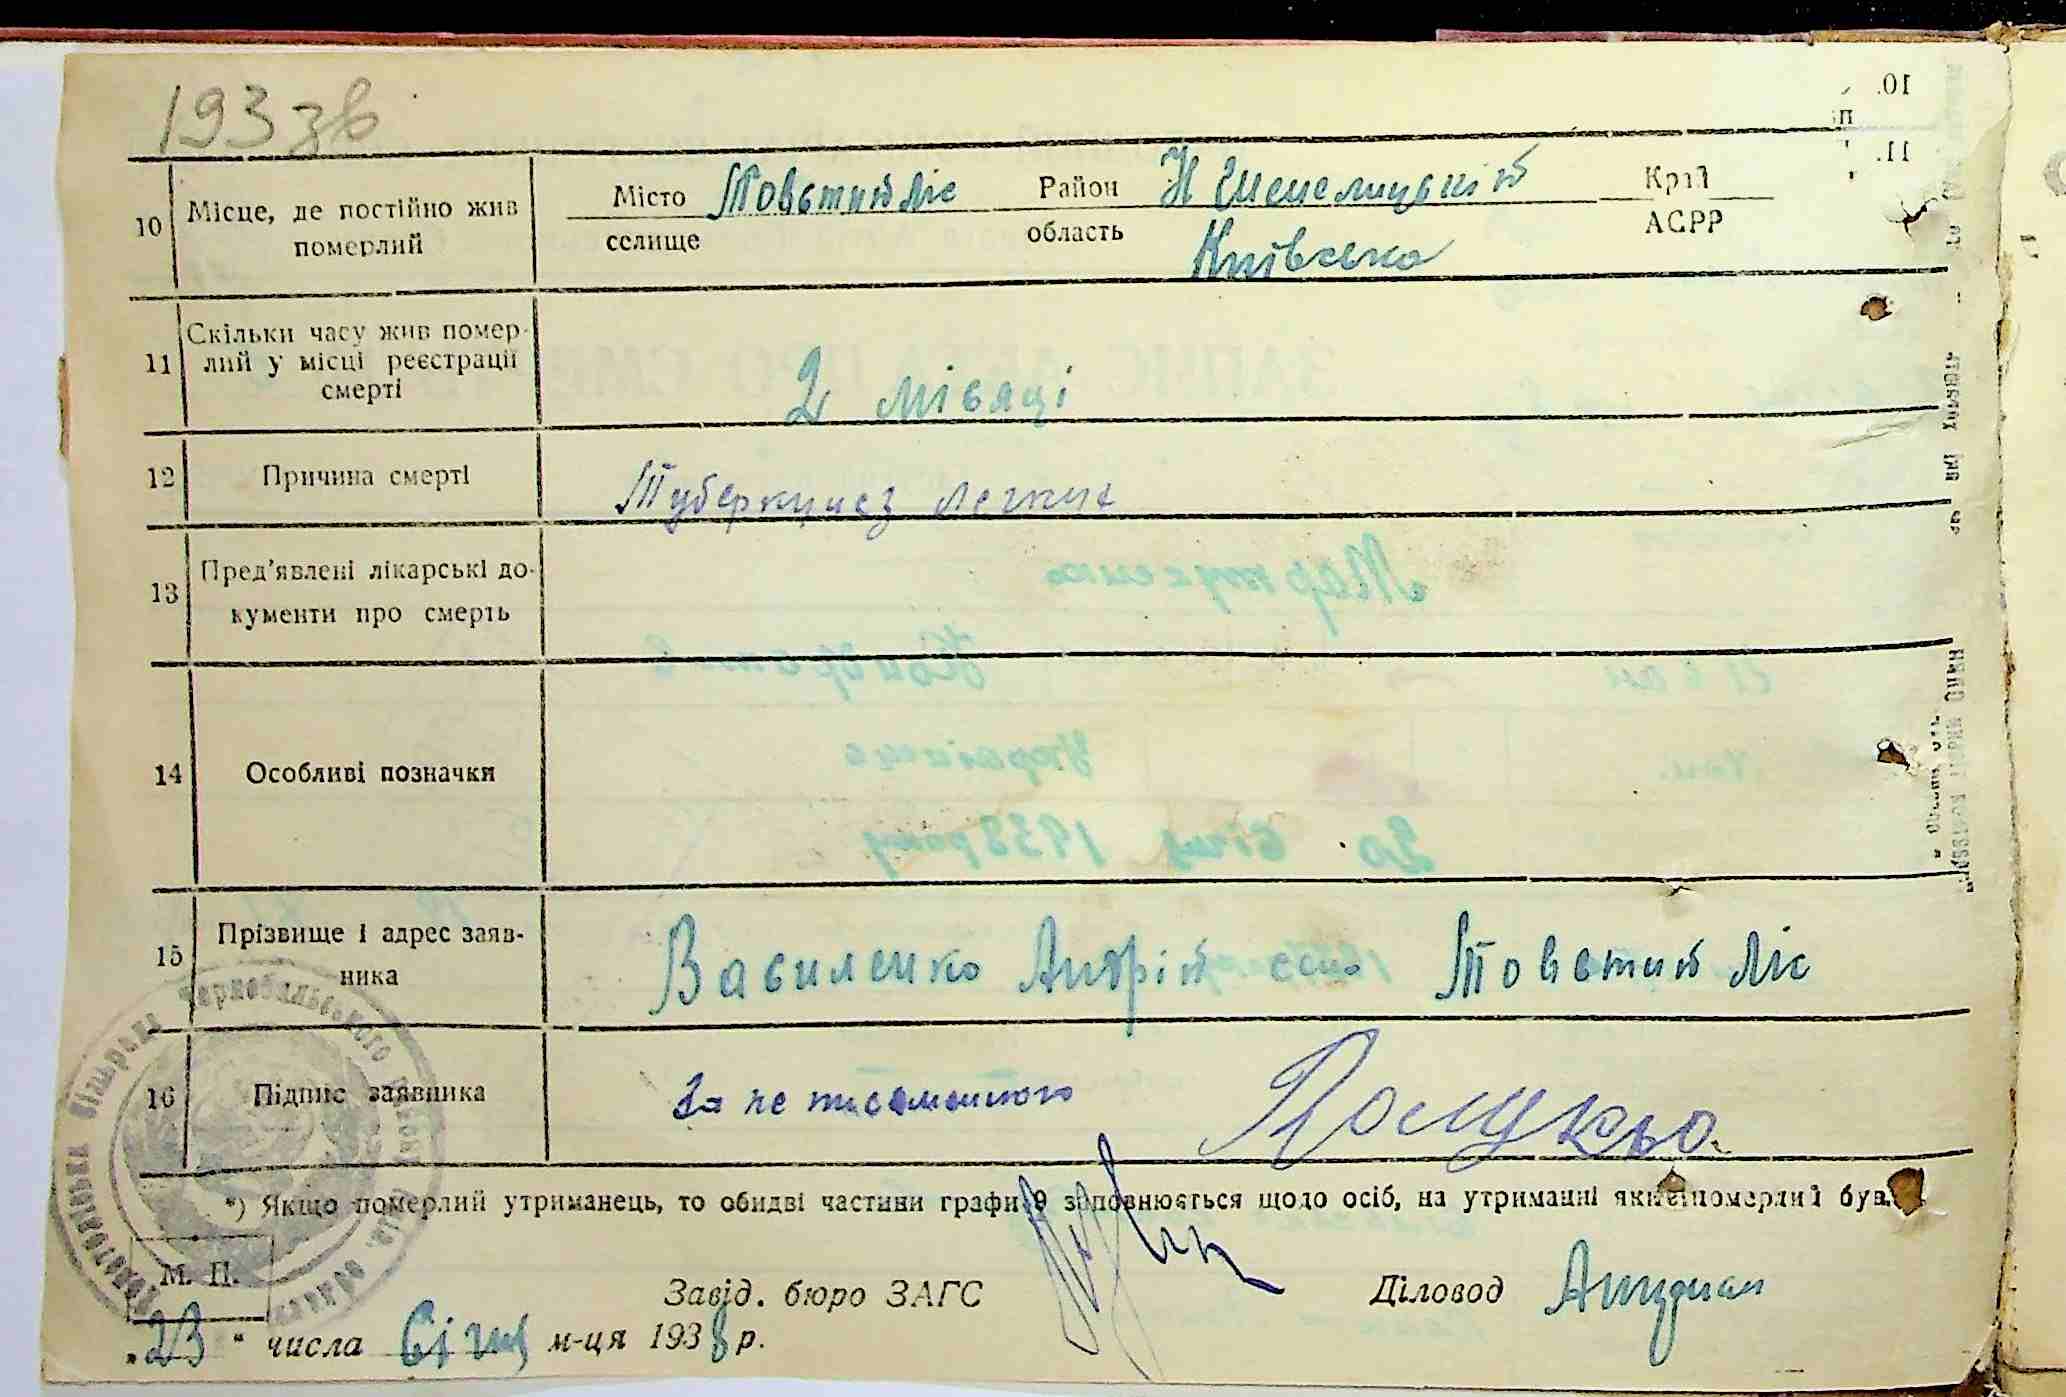 193 зв
10 Місце, де постійно жив померлий Місто селище Товстий Ліс Район область Н Шепелицький Київська Край АСРР
11 Скільки часу жив померлий у місці реєстрації смерті 2 місяці
12 Причина смерті Туберкульоз легких
13 Пред'явлені лікарські документи про смерть
14 Особливі позначки
15 Прізвище і адрес заявника Василенко Андрій село Товстий Ліс
16 Підпис заявника За не письменного
*) Якщо померлий утриманець, то обидві частини графи 9 заповнюється щодо осіб, на утриманні яких померлий був.
М. П.
Завід. бюро ЗАГС Діловод
„23" числа Січня м-ця 1938 р.